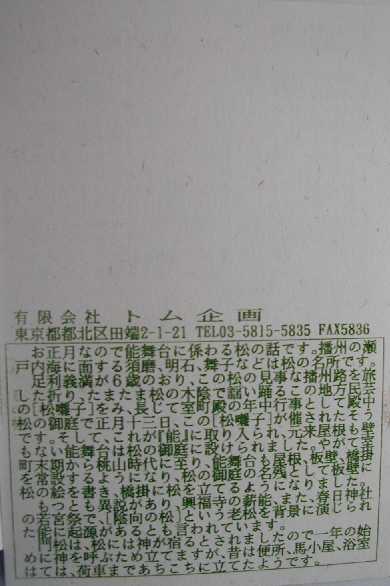 有限会社 トム企画
東京都都北区田端2-1-21 TEL03-5815-5835 FAX5836
お正月なので能舞台に係わる松の話です。播州の瀬
戸内海に面する須磨、明石、舞子などは松の名所です。
足利義満が6歳のおり、この松の見事な播州路を旅
した折り、たまたま松の木陰で謡い踊るこの地方民芸
の[松囃子]をみ、長じて室町殿の年中行事として殿中
松の御庭で正月十三日、この[松囃子]が催されたそう
です。そして、これが『能』に取り入られ、元来屋根も壁
もない能舞台は松の御庭に設けられました。やがて室
町末期から桃山時代に至り、能舞台も屋根、板壁、橋掛
を常設するようになり、松の御庭の名残として板壁に
松の絵を書き、橋掛に松を立てるようになりました。
もっとも異説があり、興福寺の薪能、また、春日神社
の若宮祭で、[陰向の松]という老松を背景に演じられ
た能に起源があるとも言われています。
門松は、松には神が宿るとされましたので一年の始
めに神を呼ぶため立てますが、昔は便所、馬小屋、浴室
はては、荷車まであちこちに立てたようです。